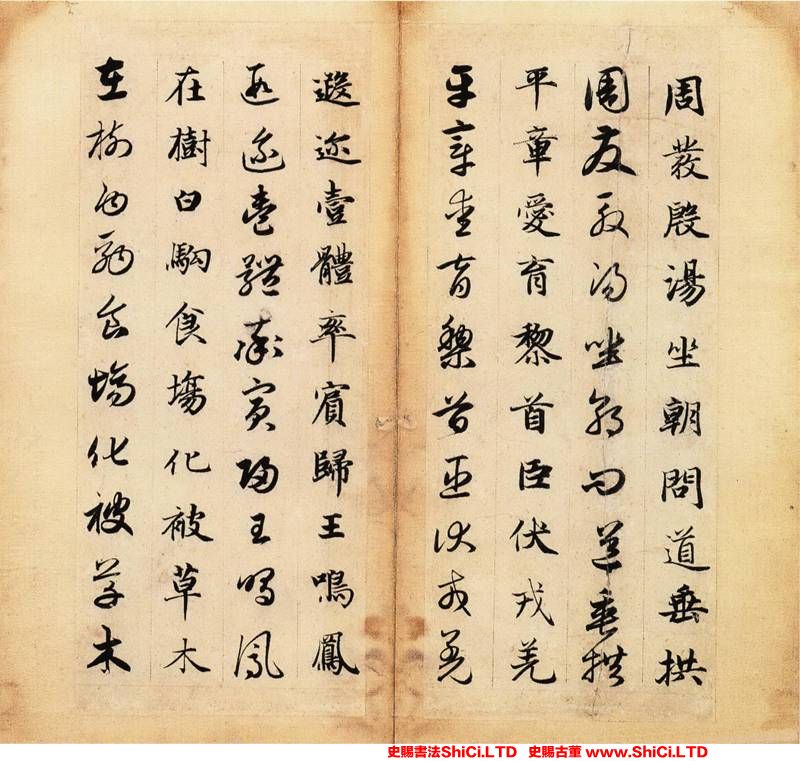 周發殷湯坐朝問道垂拱
周发殷湯坐朝問道垂拱
平章愛育黎首臣伏戎羌
平章愛育黎首臣伏戎羌
遐迩壹體率賓歸王鳴鳳
遐迩壹體率賓歸王鳴鳳
在樹白駒食場化被草木
在樹白駒食場化被草木
史賜書法ShiCi.LTD 史賜古董 www.ShiCi.LTD